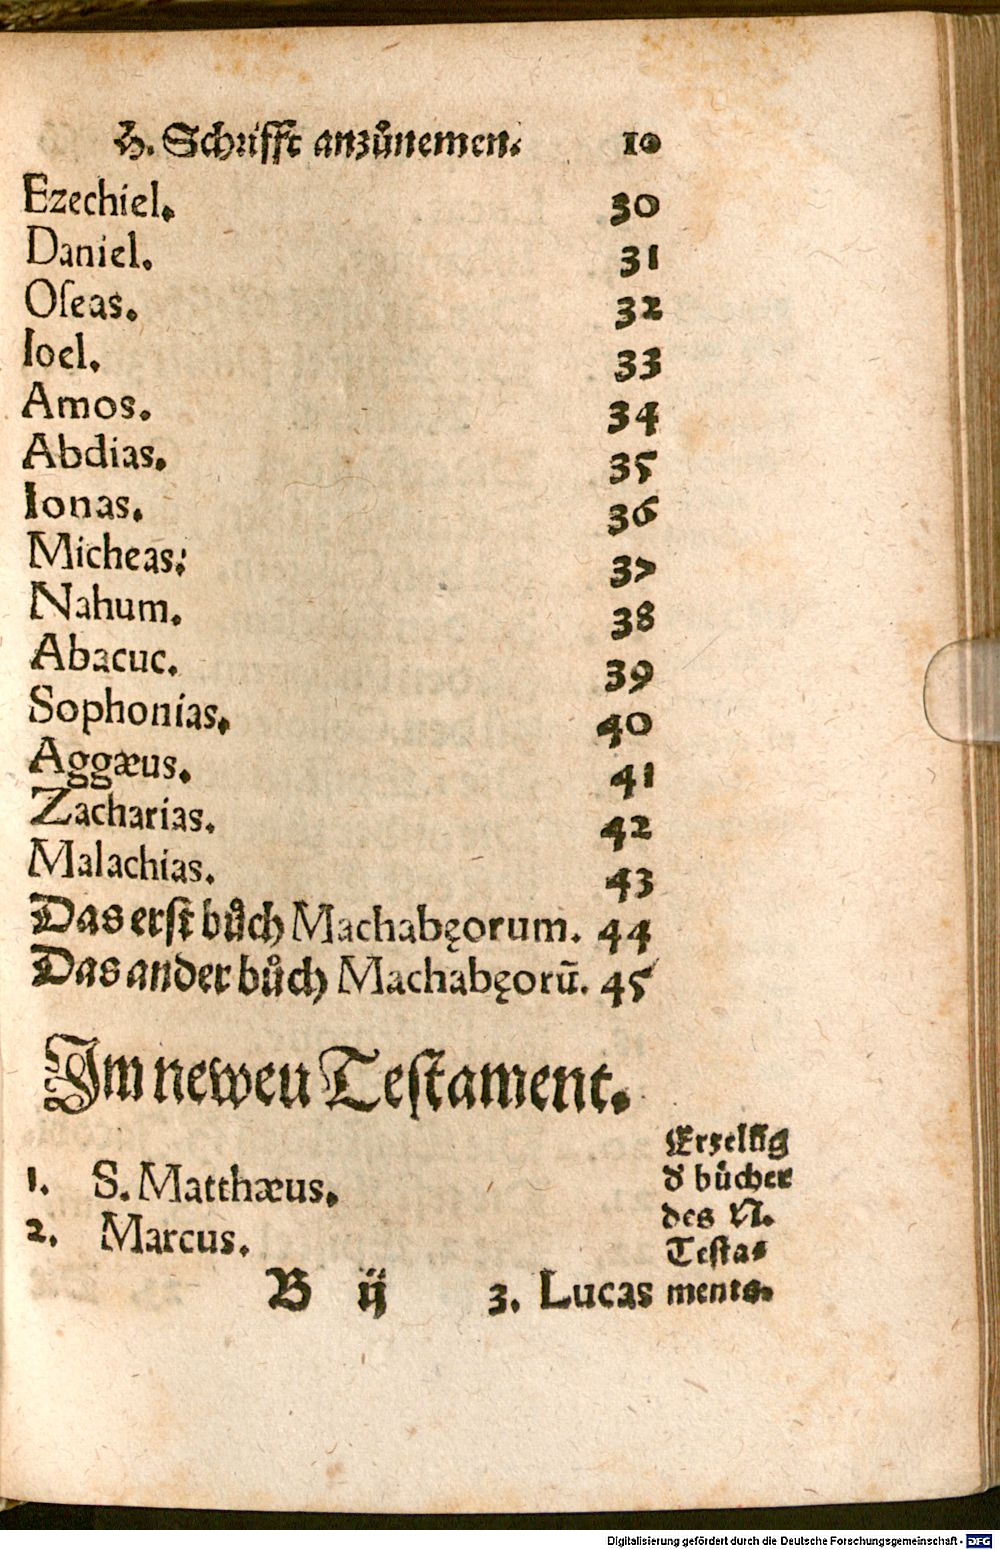 H. Schrifft anzůnemen. 10
Ezechiel. 30
Daniel. 31
Oſeas. 32
Ioel. 33
Amos. 34
Abdias. 35
Ionas. 36
Micheas: 37
Nahum. 38
Abacuc. 39
Sophonias. 40
Aggæus. 41
Zacharias. 42
Malachias. 43
Das erſt bůch Machabęorum. 44
Das ander bůch Machabęorū. 45
Im neweu Teſtament.
1. S. Matthæus.
2. Marcus.
Erzelũg
d' bücher
des N.
Teſta-
ments.
B ij 3. Lucas
Digitalisierung gefördert durch die Deutsche Forschungsgemeinschaft - DFG